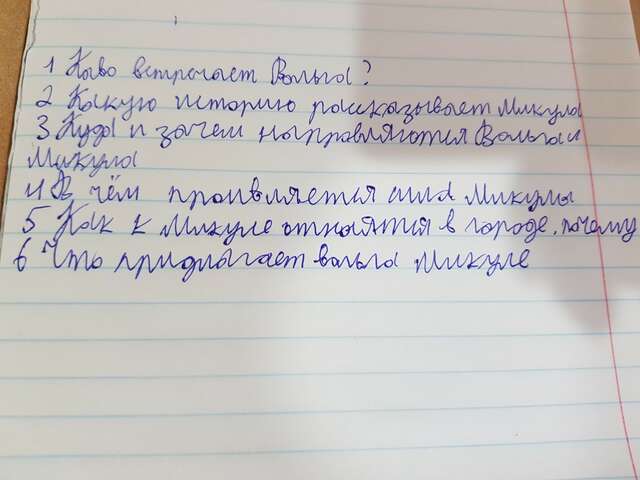 1 Каво встречает Вольга?
2 Какую историю рассказывает Микула
3 Куда и зачем направляются Вольга и
Микула
4 В чём проивляется сила Микулы
5 Как к Микуле отнаятся в городе, почему
6 Что придлагает вольга Микуле